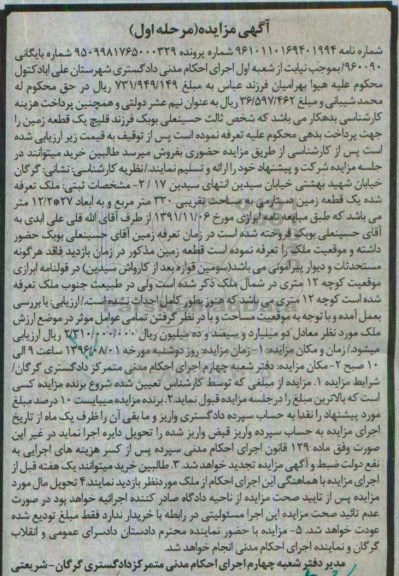 آگهی مزایده(مرحله اول)
شماره نامه ۹۶۱۰۱۱۰۱۶۹۴۰۱۹۹۴ شماره پرونده ۹۵۰۹۹۸۱۷۶۵۰۰۰۳۲۹ شماره بایگانی
۹۶۰۰۹۰/بموجب نیابت از شعبه اول اجرای احکام مدنی دادگستری شهرستان علی ابادکتول
محکوم علیه هیوا بهرامیان فرزند عباس به مبلغ ۷۳۱/۹۴۹/۱۴۹ ریال در حق محکوم له
محمد شیبانی و مبلغ ۳۶/۵۹۷/۴۶۲ ریال به عنوان نیم عشر دولتی و همچنین پرداخت هزینه
کارشناسی بدهکار می باشد که شخص ثالث حسینعلی بوبک فرزند قلیچ یک قطعه زمین را
جهت پرداخت بدهی محکوم علیه تعرفه نموده است پس از توقیف به قیمت زیر ارزیابی شده
است پس از کارشناسی از طریق مزایده حضوری بفروش میرسد طالبین خرید میتوانند در
جلسه مزایده شرکت و پیشنهاد خود را ارائه و تسلیم نمایند/نظریه کارشناسی: نشانی: گرگان
خیابان شهید بهشتی خیابان سیدین انتهای سیدین ۱۷ /۲- مشخصات ثبتی: ملک تعرفه
شده یک قطعه زمین دستارمی به مساحت تقریبی ۳۳۰ متر مربع و به ابعاد ۱۲/۲*۲۷ متر
می باشد که طبق مبایعه نامه ابرازی مورخ ۱۳۹۱/۱۱/۰۶ از طرف آقای الله قلی علی ابدی به
آقای حسینعلی بوبک فروخته شده است در زمان تعرفه زمین آقای حسینعلی بوبک حضور
داشته و موقعیت ملک را تعرفه نموده است قطعه زمین مذکور در زمان بازدید فاقد هرگونه
مستحدثات و دیوار پیرامونی می باشد(سومین قواره بعد از کارواش سیدین) در قولنامه ابرازی
موقعیت کوچه ۱۲ متری در شمال ملک ذکر شده است ولی در طبیعت جنوب ملک تعرفه
شده است کوچه ۱۲ متری می باشد که هنوز بطور کامل احداث نشده است./ارزیابی: با بررسی
بعمل آمده و با توجه به موقعیت مساحت و با در نظر گرفتن تمامی عوامل موثر در موضع ارزش
ملک مورد نظر معادل دو میلیارد و سیصد و ده میلیون ریال ۲/۳۱۰/۰۰۰/۰۰۰ ریال ارزیابی
میشود/زمان و مکان مزایده: ۱- زمان مزایده: روز دوشنبه مورخه ۱۳۹۶/۰۸/۰۱ ساعت ۹ الی
۱۰ صبح ۲- مکان مزایده: دفتر شعبه چهارم اجرای احکام مدنی متمرکز دادگستری گرگان/
شرایط مزایده ۱. مزایده از مبلغی که توسط کارشناس تعیین شده شروع برنده مزایده کسی
است که بالاترین مبلغ را درجلسه مزایده قبول نماید.۲. برنده مزایده میبایست ۱۰ درصد مبلغ
مورد پیشنهاد را نقدا به حساب سپرده دادگستری واریز و ما بقی آن را ظرف یک ماه از تاریخ
اجرای مزایده به حساب سپرده واریز قبض واریز شده را تحویل دایره اجرا نماید در غیر این
صورت وفق ماده ۱۲۹ قانون اجرای احکام مدنی سپرده پس از کسر هزینه های اجرایی به
نفع دولت ضبط و آگهی مزایده تجدید خواهد شد. ۳. طالبین خرید میتوانند یک هفته قبل از
اجرای مزایده با هماهنگی این اجرای احکام از ملک موردنظر بازدید نمایند.۴ تحویل مال مورد
مزایده پس از تایید صحت مزایده از ناحیه دادگاه صادر کننده اجرائیه خواهد بود در صورت
عدم تائید صحت مزایده این اجرا مسئولیتی در رابطه با خریدار ندارد فقط مبلغ تودیع شده
عودت خواهد شد. ۵- مزایده با حضور نماینده محترم دادستان دادسرای عمومی و انقلاب
گرگان و نماینده اجرای احکام مدنی انجام خواهد شد.
مدیر دفتر شعبه چهارم اجرای احکام مدنی متمرکز دادگستری گرگان-شریعتی